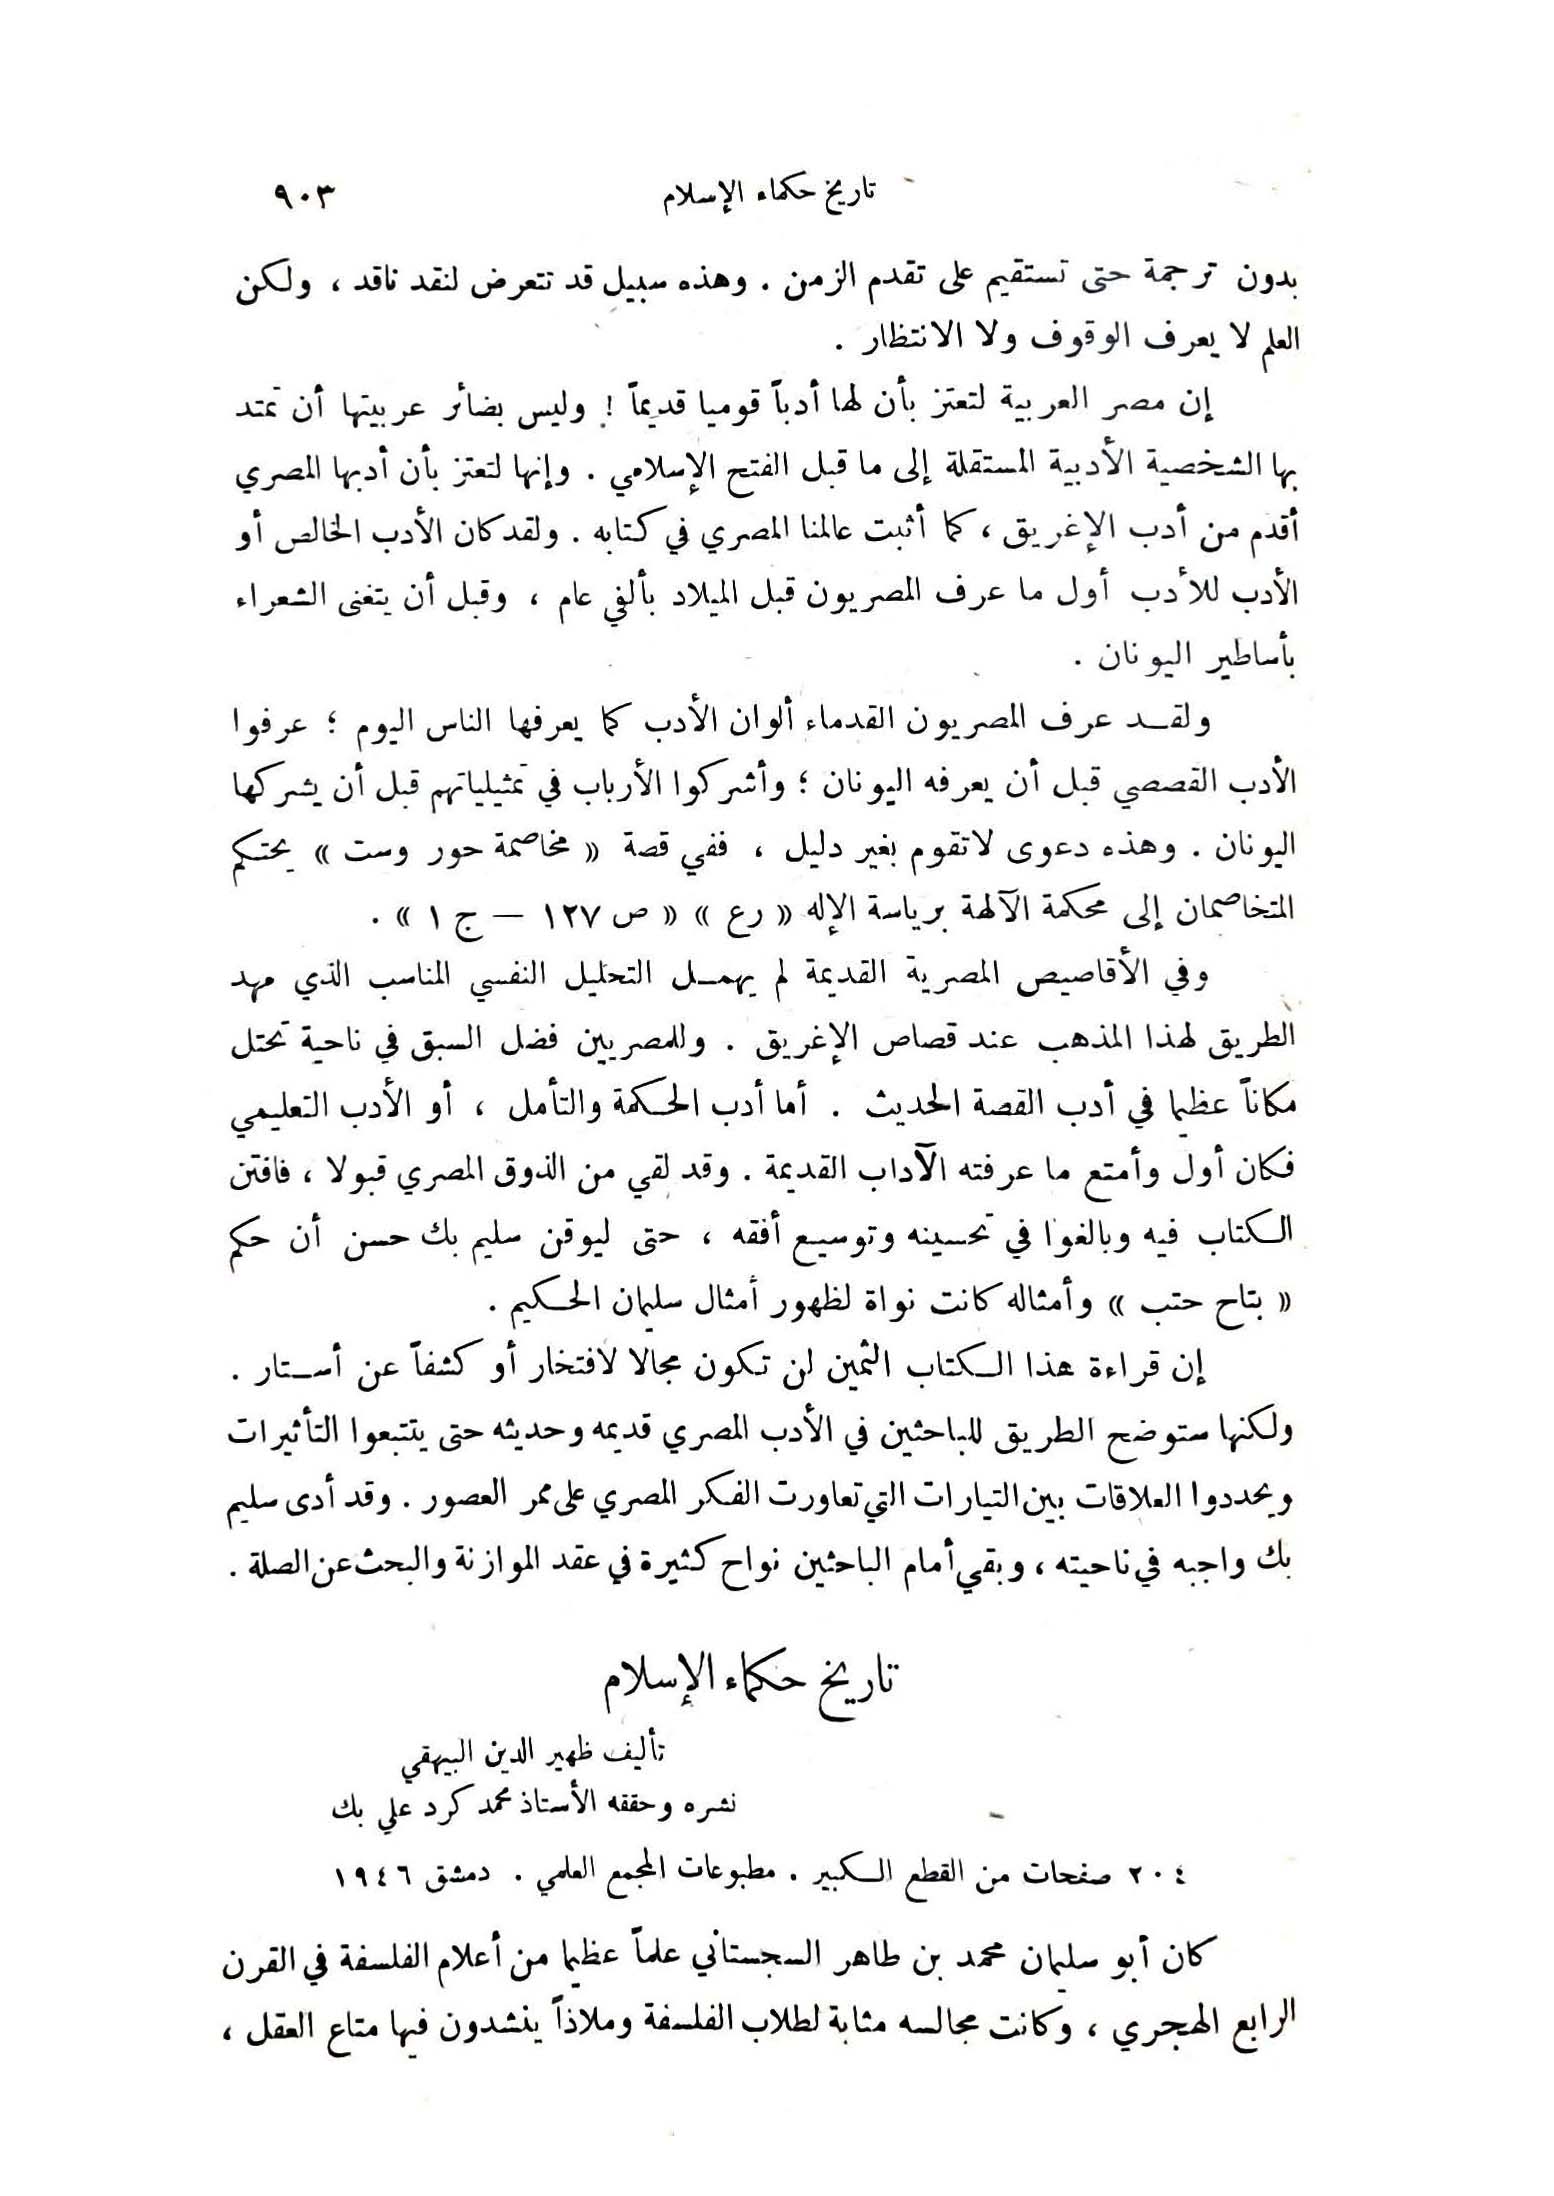 تاريخ حكماء الإسلام ٩٠٣
بدون ترجمة حتى تستقيم على تقدم الزمن . وهذه سبيل قد تتعرض لنقد ناقد ، ولكن
العلم لا يعرف الوقوف ولا الانتظار .
إن مصر العربية لتعتز بأن لها أدباً قوميا قديماً ! وليس بضائر عربيتها أن تمتد
بها الشخصية الأدبية المستقلة إلى ما قبل الفتح الإسلامي . وإنها لتعتز بأن أدبها المصري
أقدم من أدب الإغريق ، كما أثبت عالمنا المصري في كتابه . ولقد كان الأدب الخالص أو
الأدب للأدب أول ما عرف المصريون قبل الميلاد بألفي عام ، وقبل أن يتغنى الشعراء
بأساطير اليونان .
ولقد عرف المصريون القدماء ألوان الأدب كما يعرفها الناس اليوم ؛ عرفوا
الأدب القصصي قبل أن يعرفه اليونان ؛ وأشركوا الأرباب في تمثيلياتهم قبل أن يشركها
اليونان . وهذه دعوى لا تقوم بغير دليل ، ففي قصة « مخاصمة حور وست » يحتكم
المتخاصمان إلى محكمة الآلهة برياسة الإله « رع » « ص ١٢٧ — ج ١ » .
وفي الأقاصيص المصرية القديمة لم يهمل التحليل النفسي المناسب الذي مهد
الطريق لهذا المذهب عند قصاص الإغريق . وللمصريين فضل السبق في ناحية تحتل
مكاناً عظيما في أدب القصة الحديث . أما أدب الحكمة والتأمل ، أو الأدب التعليمي
فكان أول وأمتع ما عرفته الآداب القديمة . وقد لقي من الذوق المصري قبولا ، فافتن
الكتاب فيه وبالغوا في تحسينه وتوسيع أفقه ، حتى ليوقن سليم بك حسن أن حكم
« بتاح حتب » وأمثاله كانت نواة لظهور أمثال سليمان الحكيم .
إن قراءة هذا الكتاب الثمين لن تكون مجالا لافتخار أو كشفاً عن أستار .
ولكنها ستوضح الطريق للباحثين في الأدب المصري قديمه وحديثه حتى يتتبعوا التأثيرات
ويحددوا العلاقات بين التيارات التي تعاورت الفكر المصري على ممر العصور . وقد أدى سليم
بك واجبه في ناحيته ، وبقي أمام الباحثين نواح كثيرة في عقد الموازنة والبحث عن الصلة .
تاريخ حكماء الإسلام
تأليف ظهير الدين البيهقي
نشره وحققه الأستاذ محمد كرد علي بك
٢٠٤ صفحات من القطع الكبير . مطبوعات المجمع العلمي . دمشق ١٩٤٦
كان أبو سليمان محمد بن طاهر السجستاني علماً عظيما من أعلام الفلسفة في القرن
الرابع الهجري ، وكانت مجالسه مثابة لطلاب الفلسفة وملاذاً ينشدون فيها متاع العقل ،